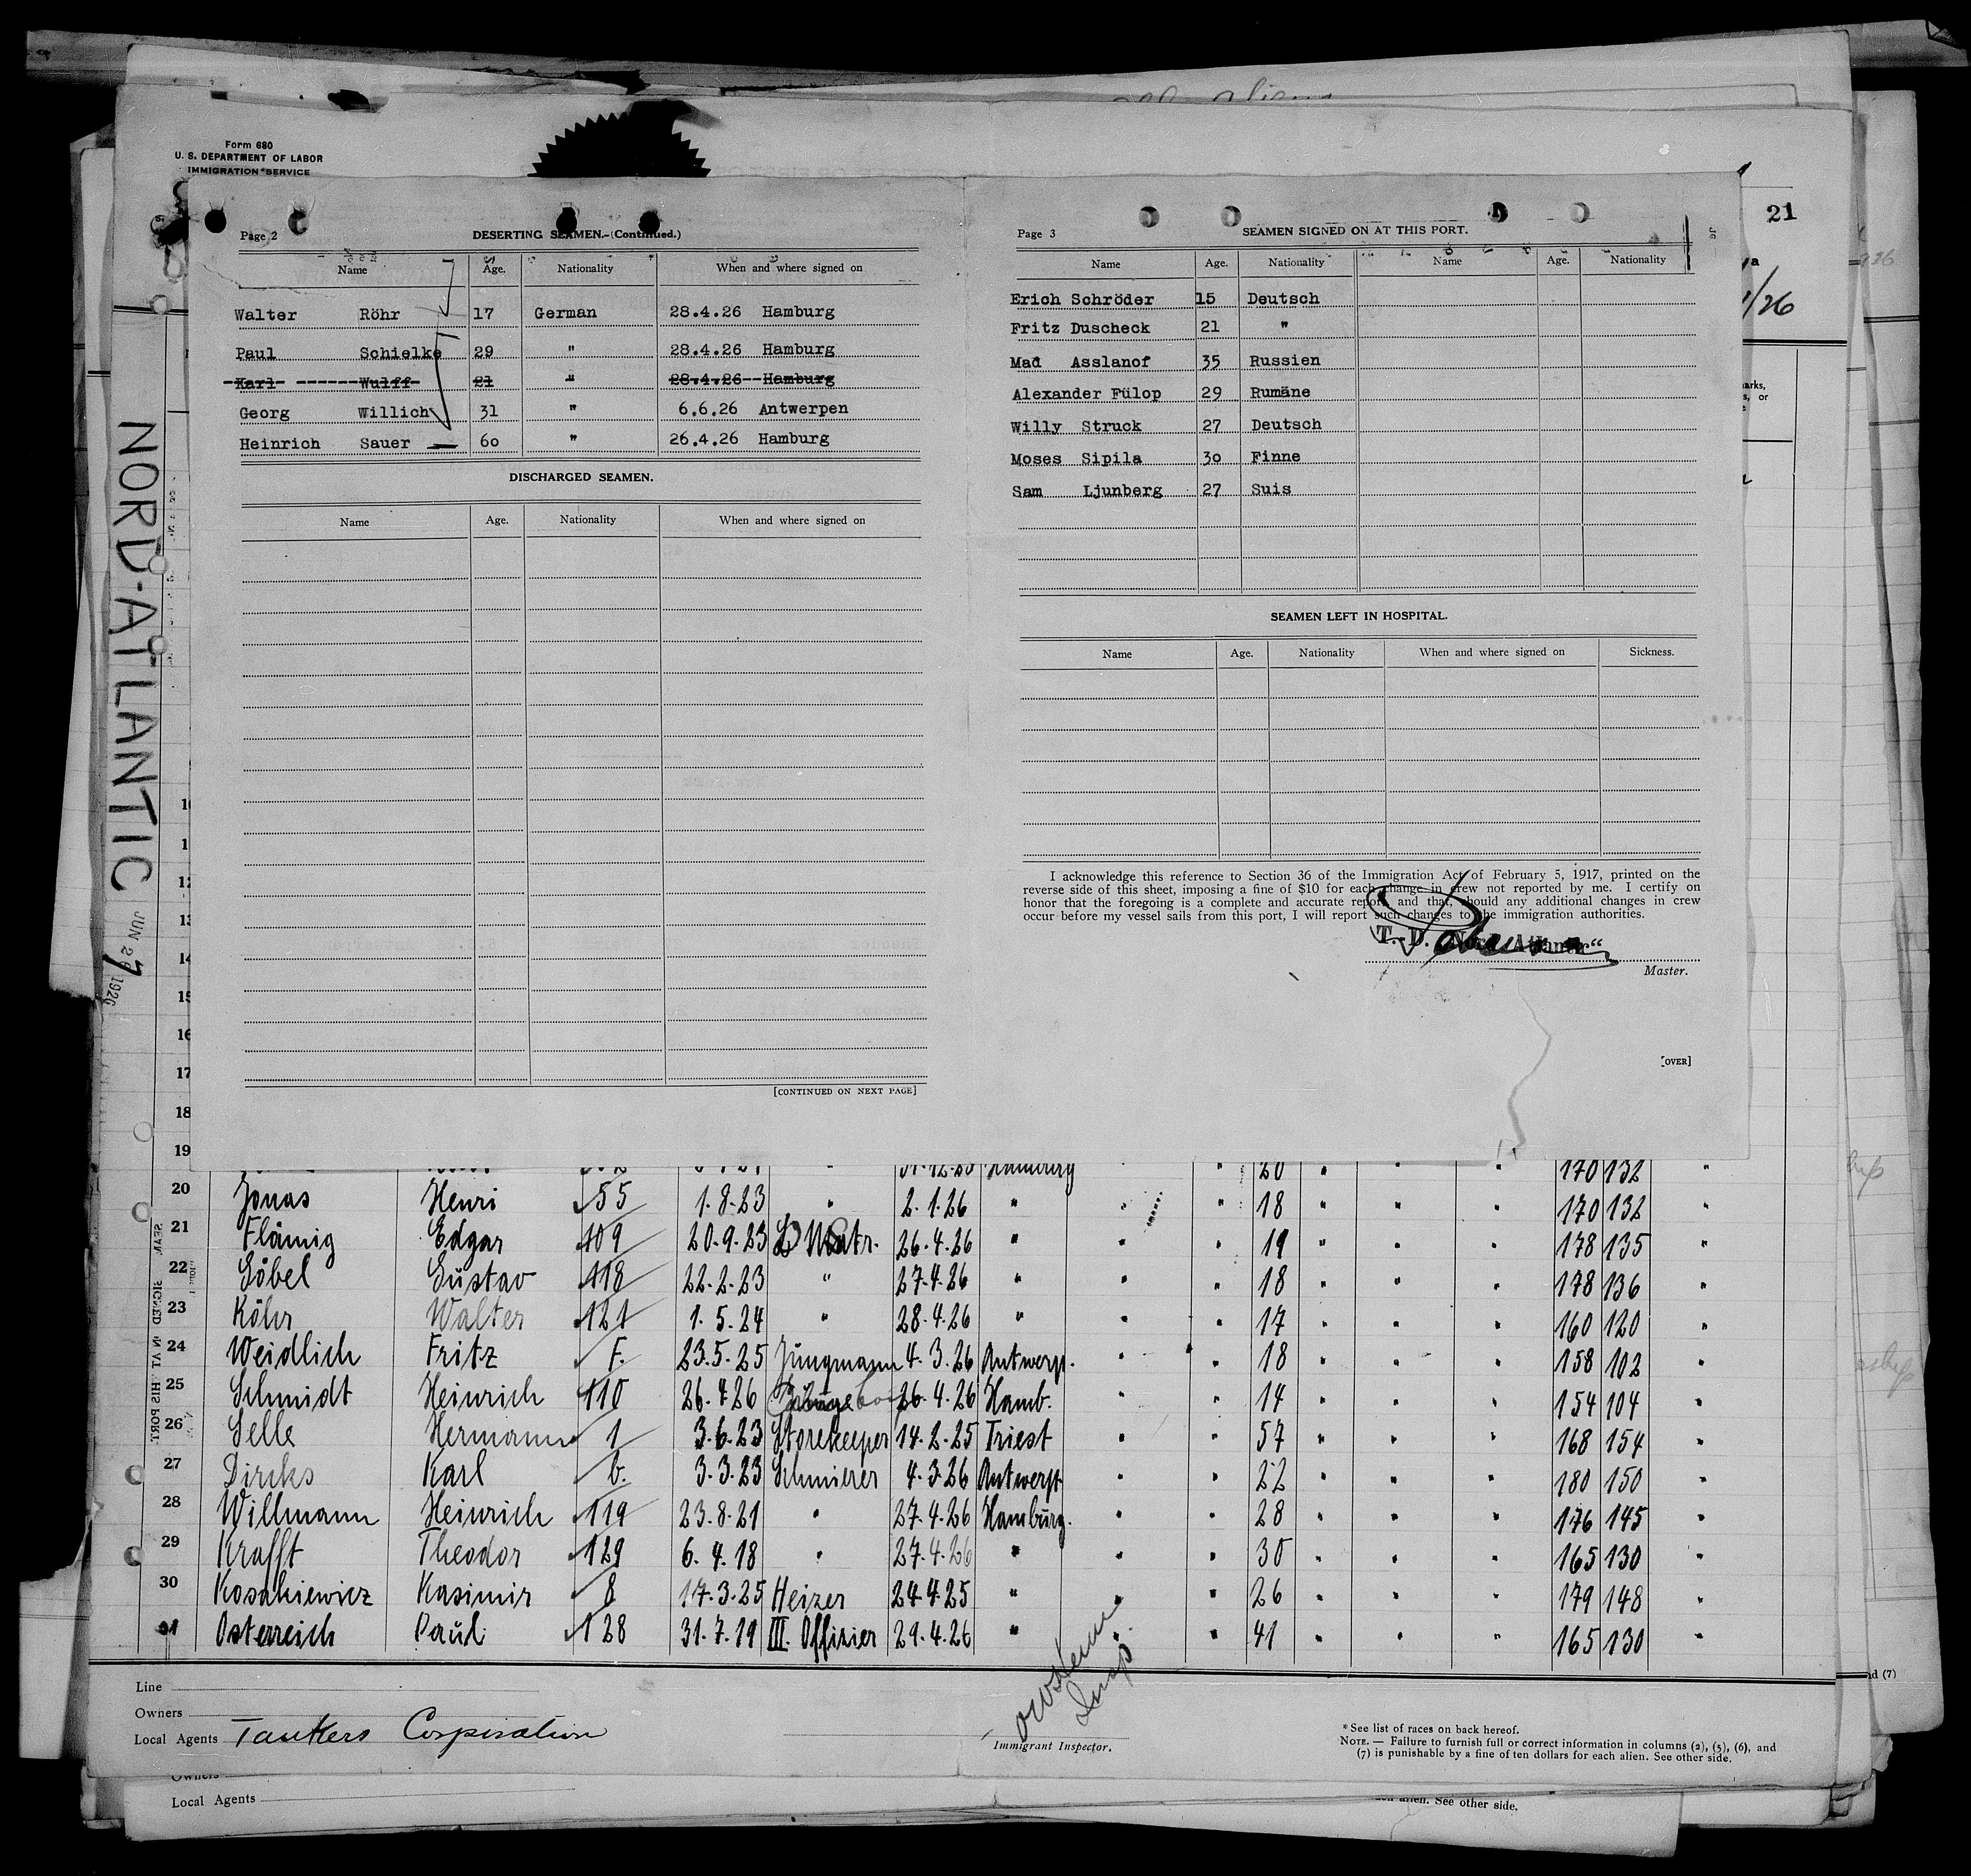 all aliens
Form 680
U. S. DEPARTMENT OF LABOR
IMMIGRATION SERVICE
21
/26
NORD-ATLANTIC
JUN 27 1926
Page 2 DESERTING SEAMEN.-(Continued.)
Name Age. Nationality When and where signed on
Walter Röhr 17 German 28.4.26 Hamburg
Paul Schielke 29 " 28.4.26 Hamburg
Karl Wulff 21 " 28.4.26 Hamburg
Georg Willich 31 " 6.6.26 Antwerpen
Heinrich Sauer 60 " 26.4.26 Hamburg
DISCHARGED SEAMEN.
Name Age. Nationality When and where signed on
[CONTINUED ON NEXT PAGE]
Page 3 SEAMEN SIGNED ON AT THIS PORT.
Name Age. Nationality Name Age. Nationality
Erich Schröder 15 Deutsch
Fritz Duscheck 21 "
Mad Asslanof 35 Russien
Alexander Fülop 29 Rumäne
Willy Struck 27 Deutsch
Moses Sipila 30 Finne
Sam Ljunberg 27 Suis
SEAMEN LEFT IN HOSPITAL.
Name Age. Nationality When and where signed on Sickness.
I acknowledge this reference to Section 36 of the Immigration Act of February 5, 1917, printed on the
reverse side of this sheet, imposing a fine of $10 for each change in crew not reported by me. I certify on
honor that the foregoing is a complete and accurate report and that, should any additional changes in crew
occur before my vessel sails from this port, I will report such changes to the immigration authorities.
T. D. „Nord Atlantic“
Master.
[OVER]
10
11
12
13
14
15
16
17
18
19 31.12.25 Hamburg " " 20 " " " 170 132 "
20 Jonas Henri 55 1.8.23 " 2.1.26 " " " 18 " " " 170 132 "
21 Flämig Edgar 109 20.9.23 L Matr. 26.4.26 " " " 19 " " " 178 135 "
22 Göbel Gustav 118 22.2.23 " 27.4.26 " " " 18 " " " 178 136 "
23 Röhr Walter 121 1.5.24 " 28.4.26 " " " 17 " " " 160 120 "
24 Weidlich Fritz F. 23.5.25 Jungmann 4.3.26 Antwerp. " " 18 " " " 158 102 "
25 Schmidt Heinrich 110 26.4.26 26.4.26 Hamb. " " 14 " " " 154 104 "
26 Selle Hermann 1 3.6.23 Storekeeper 14.2.25 Triest " " 57 " " " 168 154 "
27 Dircks Karl b. 3.3.23 Schmierer 4.3.26 Antwerp. " " 22 " " " 180 150 "
28 Willmann Heinrich 119 23.8.21 " 27.4.26 Hamburg. " " 28 " " " 176 145 "
29 Krafft Theodor 129 6.4.18 " 27.4.26 " " " 30 " " " 165 130 "
30 Kosakiewicz Kasimir 8 17.3.25 Heizer 24.4.25 " " " 26 " " " 179 148 "
31 Osterreich Paul 128 31.7.19 III. Offizier 29.4.26 " " " 41 " " " 165 130 "
Line
Owners
Local Agents Tankers Corporation
Insp.
Immigrant Inspector.
* See list of races on back hereof.
NOTE. — Failure to furnish full or correct information in columns (2), (5), (6), and
(7) is punishable by a fine of ten dollars for each alien. See other side.
Owners
Local Agents
alien. See other side.